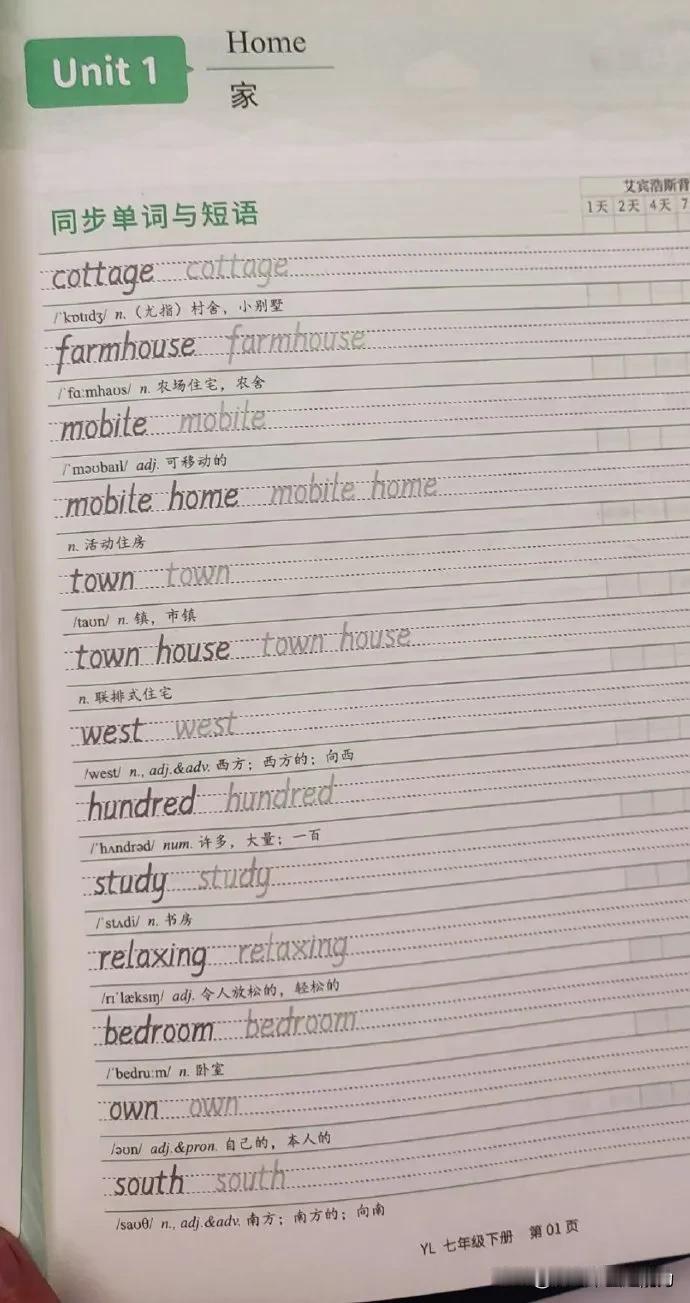 Unit 1
Home
家
同步单词与短语
艾宾浩斯背
1天 2天 4天 7
cottage cottage
/ˈkɒtɪdʒ/ n.（尤指）村舍，小别墅
farmhouse farmhouse
/ˈfɑːmhaʊs/ n. 农场住宅，农舍
mobile mobile
/ˈməʊbaɪl/ adj. 可移动的
mobile home mobile home
n. 活动住房
town town
/taʊn/ n. 镇，市镇
town house town house
n. 联排式住宅
west west
/west/ n., adj.&adv. 西方；西方的；向西
hundred hundred
/ˈhʌndrəd/ num. 许多，大量；一百
study study
/ˈstʌdi/ n. 书房
relaxing relaxing
/rɪˈlæksɪŋ/ adj. 令人放松的，轻松的
bedroom bedroom
/ˈbedruːm/ n. 卧室
own own
/əʊn/ adj.&pron. 自己的，本人的
south south
/saʊθ/ n., adj.&adv. 南方；南方的；向南
YL 七年级下册 第 01 页